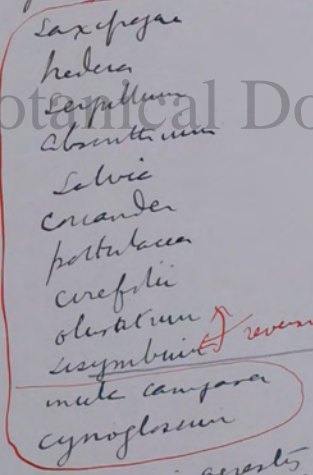 Saxifragae
hedera
Serpillum
otanical Do
absinthium
Salvia
coriander
portulacea
cerefolii
olusatrum
sisymbrium revers
inula campana
cynoglossum
agrestis